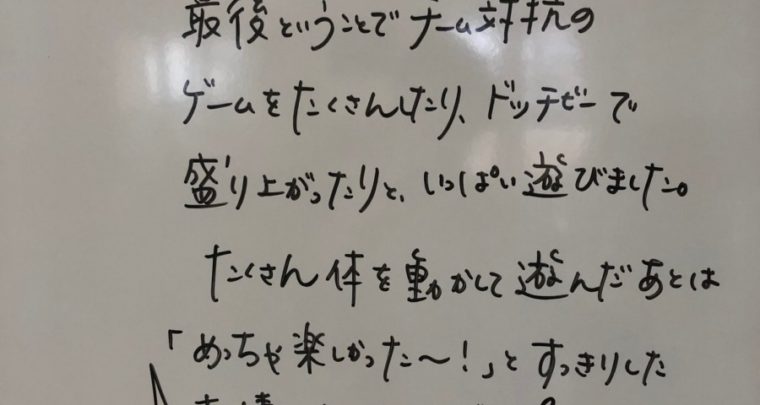 最後ということでチーム対抗の
ゲームをたくさんしたり、ドッヂビーで
盛り上がったりと、いっぱい遊びました。
たくさん体を動かして遊んだあとは
「めっちゃ楽しかった〜!」とすっきりした